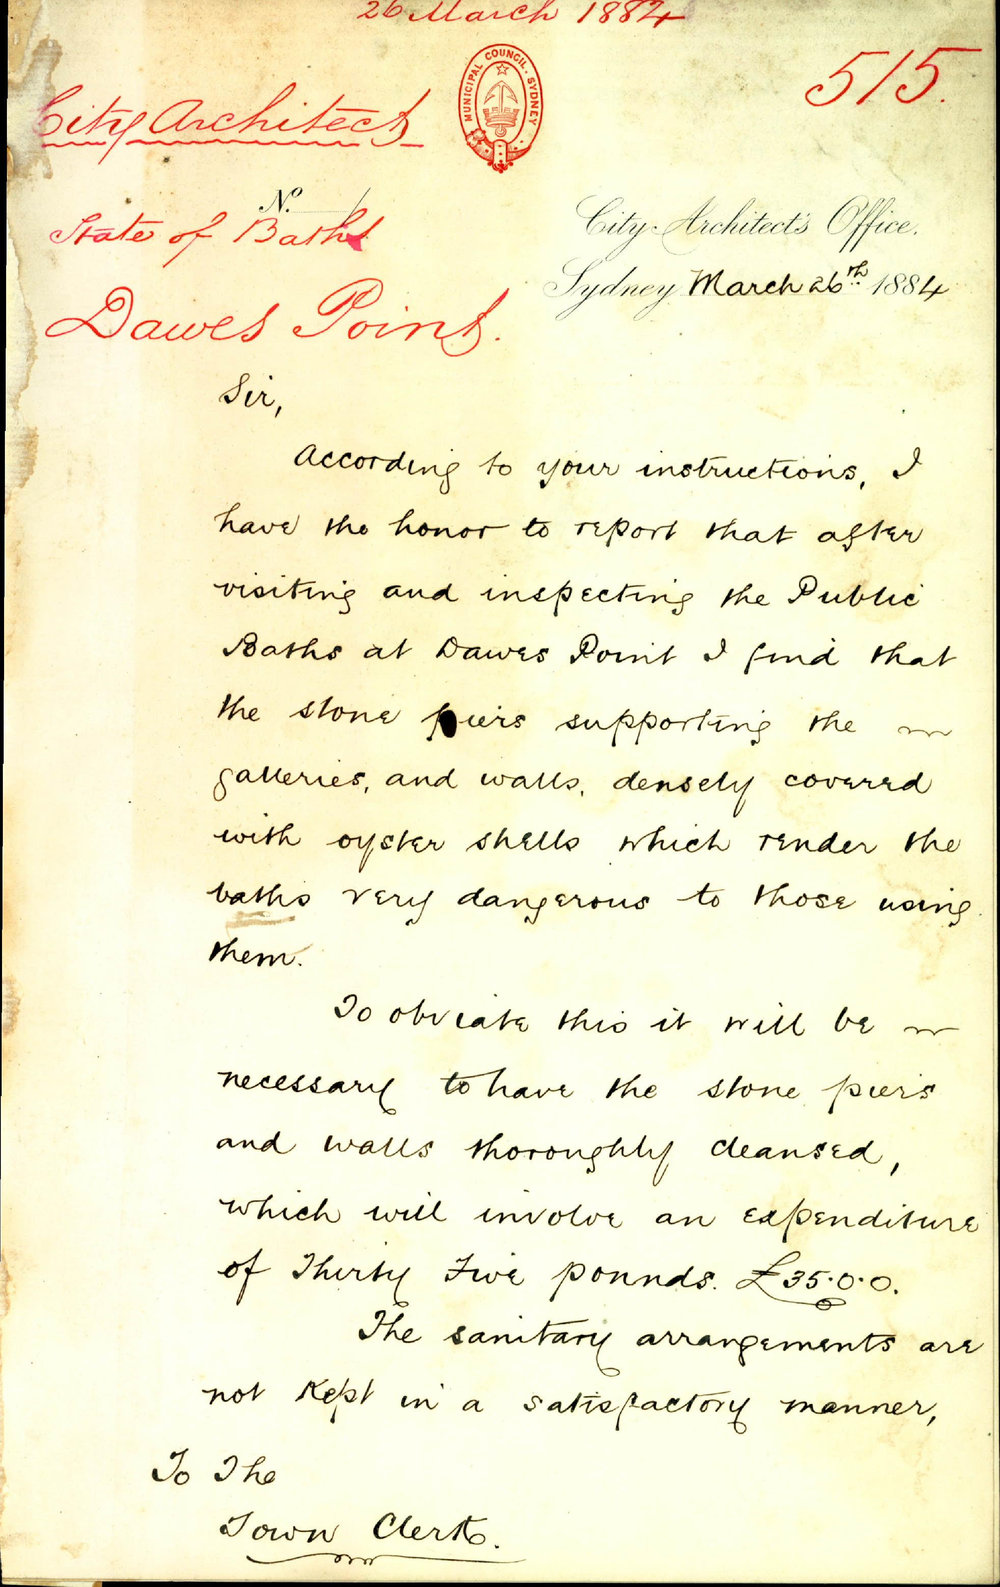 26 March 1884
515.
MUNICIPAL COUNCIL. SYDNEY
City Architect
No
State of Baths
Dawes Point.
City Architect's Office.
Sydney March 26th 1884
Sir,
According to your instructions, I
have the honor to report that after
visiting and inspecting the Public
Baths at Dawes Point I find that
the stone piers supporting the
galleries, and walls, densely covered
with oyster shells which render the
baths very dangerous to those using
them.
To obviate this it will be
necessary to have the stone piers
and walls thoroughly cleansed,
which will involve an expenditure
of Thirty Five pounds. £35.0.0.
The sanitary arrangements are
not kept in a satisfactory manner,
To The
Town Clerk.